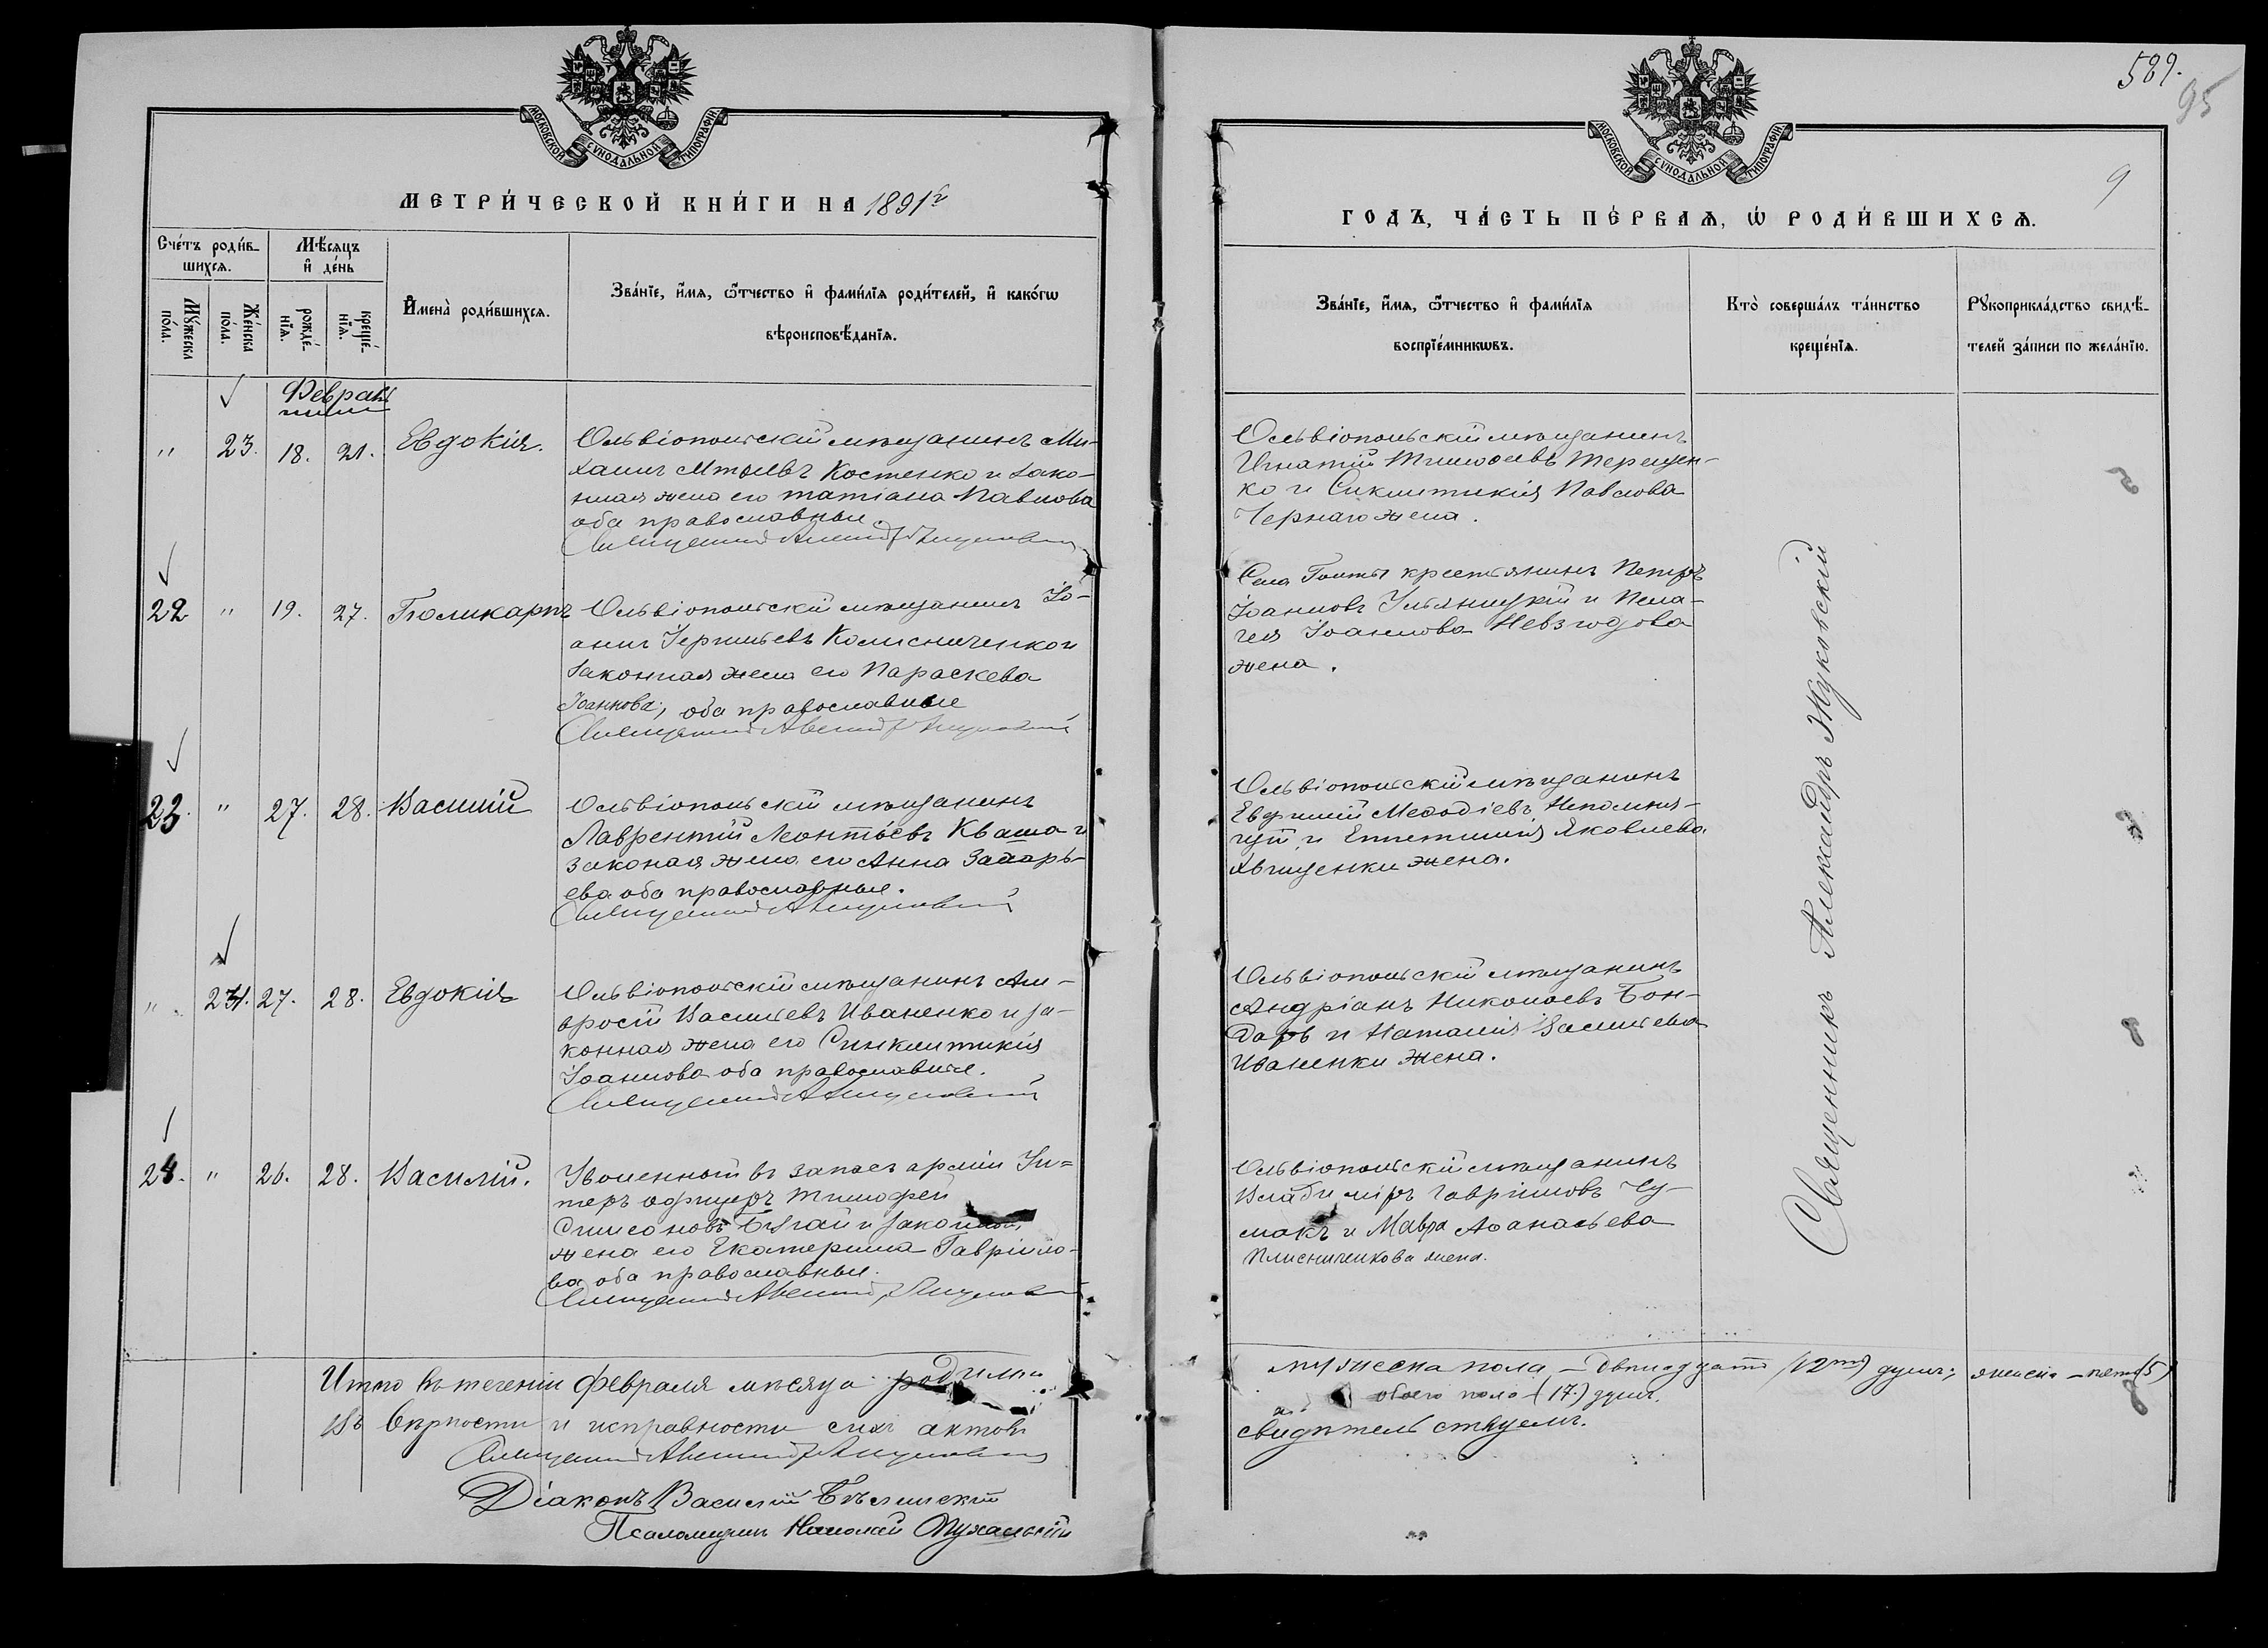 589.
95
9
МОСКОВСКОЙ СѴНОДАЛЬНОЙ ТИПОГРАФІИ.
МЕТРИ́ЧЕСКОЙ КНИ́ГИ НА 1891 г
Сче́тъ роди́в-
шихсѧ.
Мѣ́сѧцъ
и҆ де́нь
Мꙋ́жеска
по́ла.
Же́нска
по́ла.
рожде́-
нїѧ.
креще́-
нїѧ.
И҆мена̀ роди́вшихсѧ.
Зва́нїе, и҆́мѧ, ѻ҆́тчество и҆ фами́лїѧ роди́телей, и҆ како́гѡ
вѣроисповѣ́данїѧ.
Февраль
" 23. 18. 21. Евдокія.
Ольвіопольскій мѣщанинъ Ми-
хаилъ Костенко и зако-
нная жена его Татіана Павлова
оба православные.
Священникъ
22 " 19. 27. Поликарпъ
Ольвіопольскій мѣщанинъ Іо-
аннъ Колисниченко и
законная жена его Параскева
Іоаннова, оба православные
Священникъ
23. " 27. 28. Василій
Ольвіопольскій мѣщанинъ
Лаврентій Леонтьевъ Кваша и
законая жена его Анна Захарь-
ева оба православные.
Священникъ
" 24. 27. 28. Евдокія
Ольвіопольскій мѣщанинъ Ам-
вросій Васильевъ Иваненко и за-
конная жена его Синклитикія
Іоаннова оба православные.
Священникъ
24. " 26. 28. Василій.
Уволенный въ запасъ арміи Ун-
теръ офицеръ Тимофей
Симеоновъ и законная
жена его Екатерина Гавріило-
ва оба православные.
Священникъ
Итого въ теченіи Февраля мѣсяца родилось
Въ вѣрности и исправности сихъ актовъ
Священникъ
Діаконъ Василій
Псаломщикъ Николай
МОСКОВСКОЙ СѴНОДАЛЬНОЙ ТИПОГРАФІИ.
ГОДЪ, ЧА́СТЬ ПЕ́РВАѦ, Ѡ҆ РОДИ́ВШИХСѦ.
Зва́нїе, и҆́мѧ, ѻ҆́тчество и҆ фами́лїѧ
воспрїе́мникѡвъ.
Кто̀ соверша́лъ та́инство
креще́нїѧ.
Рꙋкоприкла́дство свидѣ́-
телей за́писи по жела́нїю.
Ольвіопольскій мѣщанинъ
Игнатій Тимофеевъ Терещен-
ко и Синклитикія Павлова
Чернаго жена.
Села Голты крестьянинъ Петръ
Іоанновъ Ульяницкій и Пела-
гія Іоаннова Невзгодова
жена.
Ольвіопольскій мѣщанинъ
Евфимій Меѳодіевъ Непомня-
щій и Епистимія Яковлева
жена.
Ольвіопольскій мѣщанинъ
Андріанъ Николаевъ Бон-
дарь и Наталія Васильева
Иваненки жена.
Ольвіопольскій мѣщанинъ
Владиміръ Гавріиловъ Чу-
макъ и Мавра Аѳанасьева
Плисниченкова жена.
Священникъ Александръ Жуковскій
мужеска пола – двѣнадцать (12ть) душъ; женска – пять (5)
обоего пола (17) душъ.
свидѣтельствуемъ.